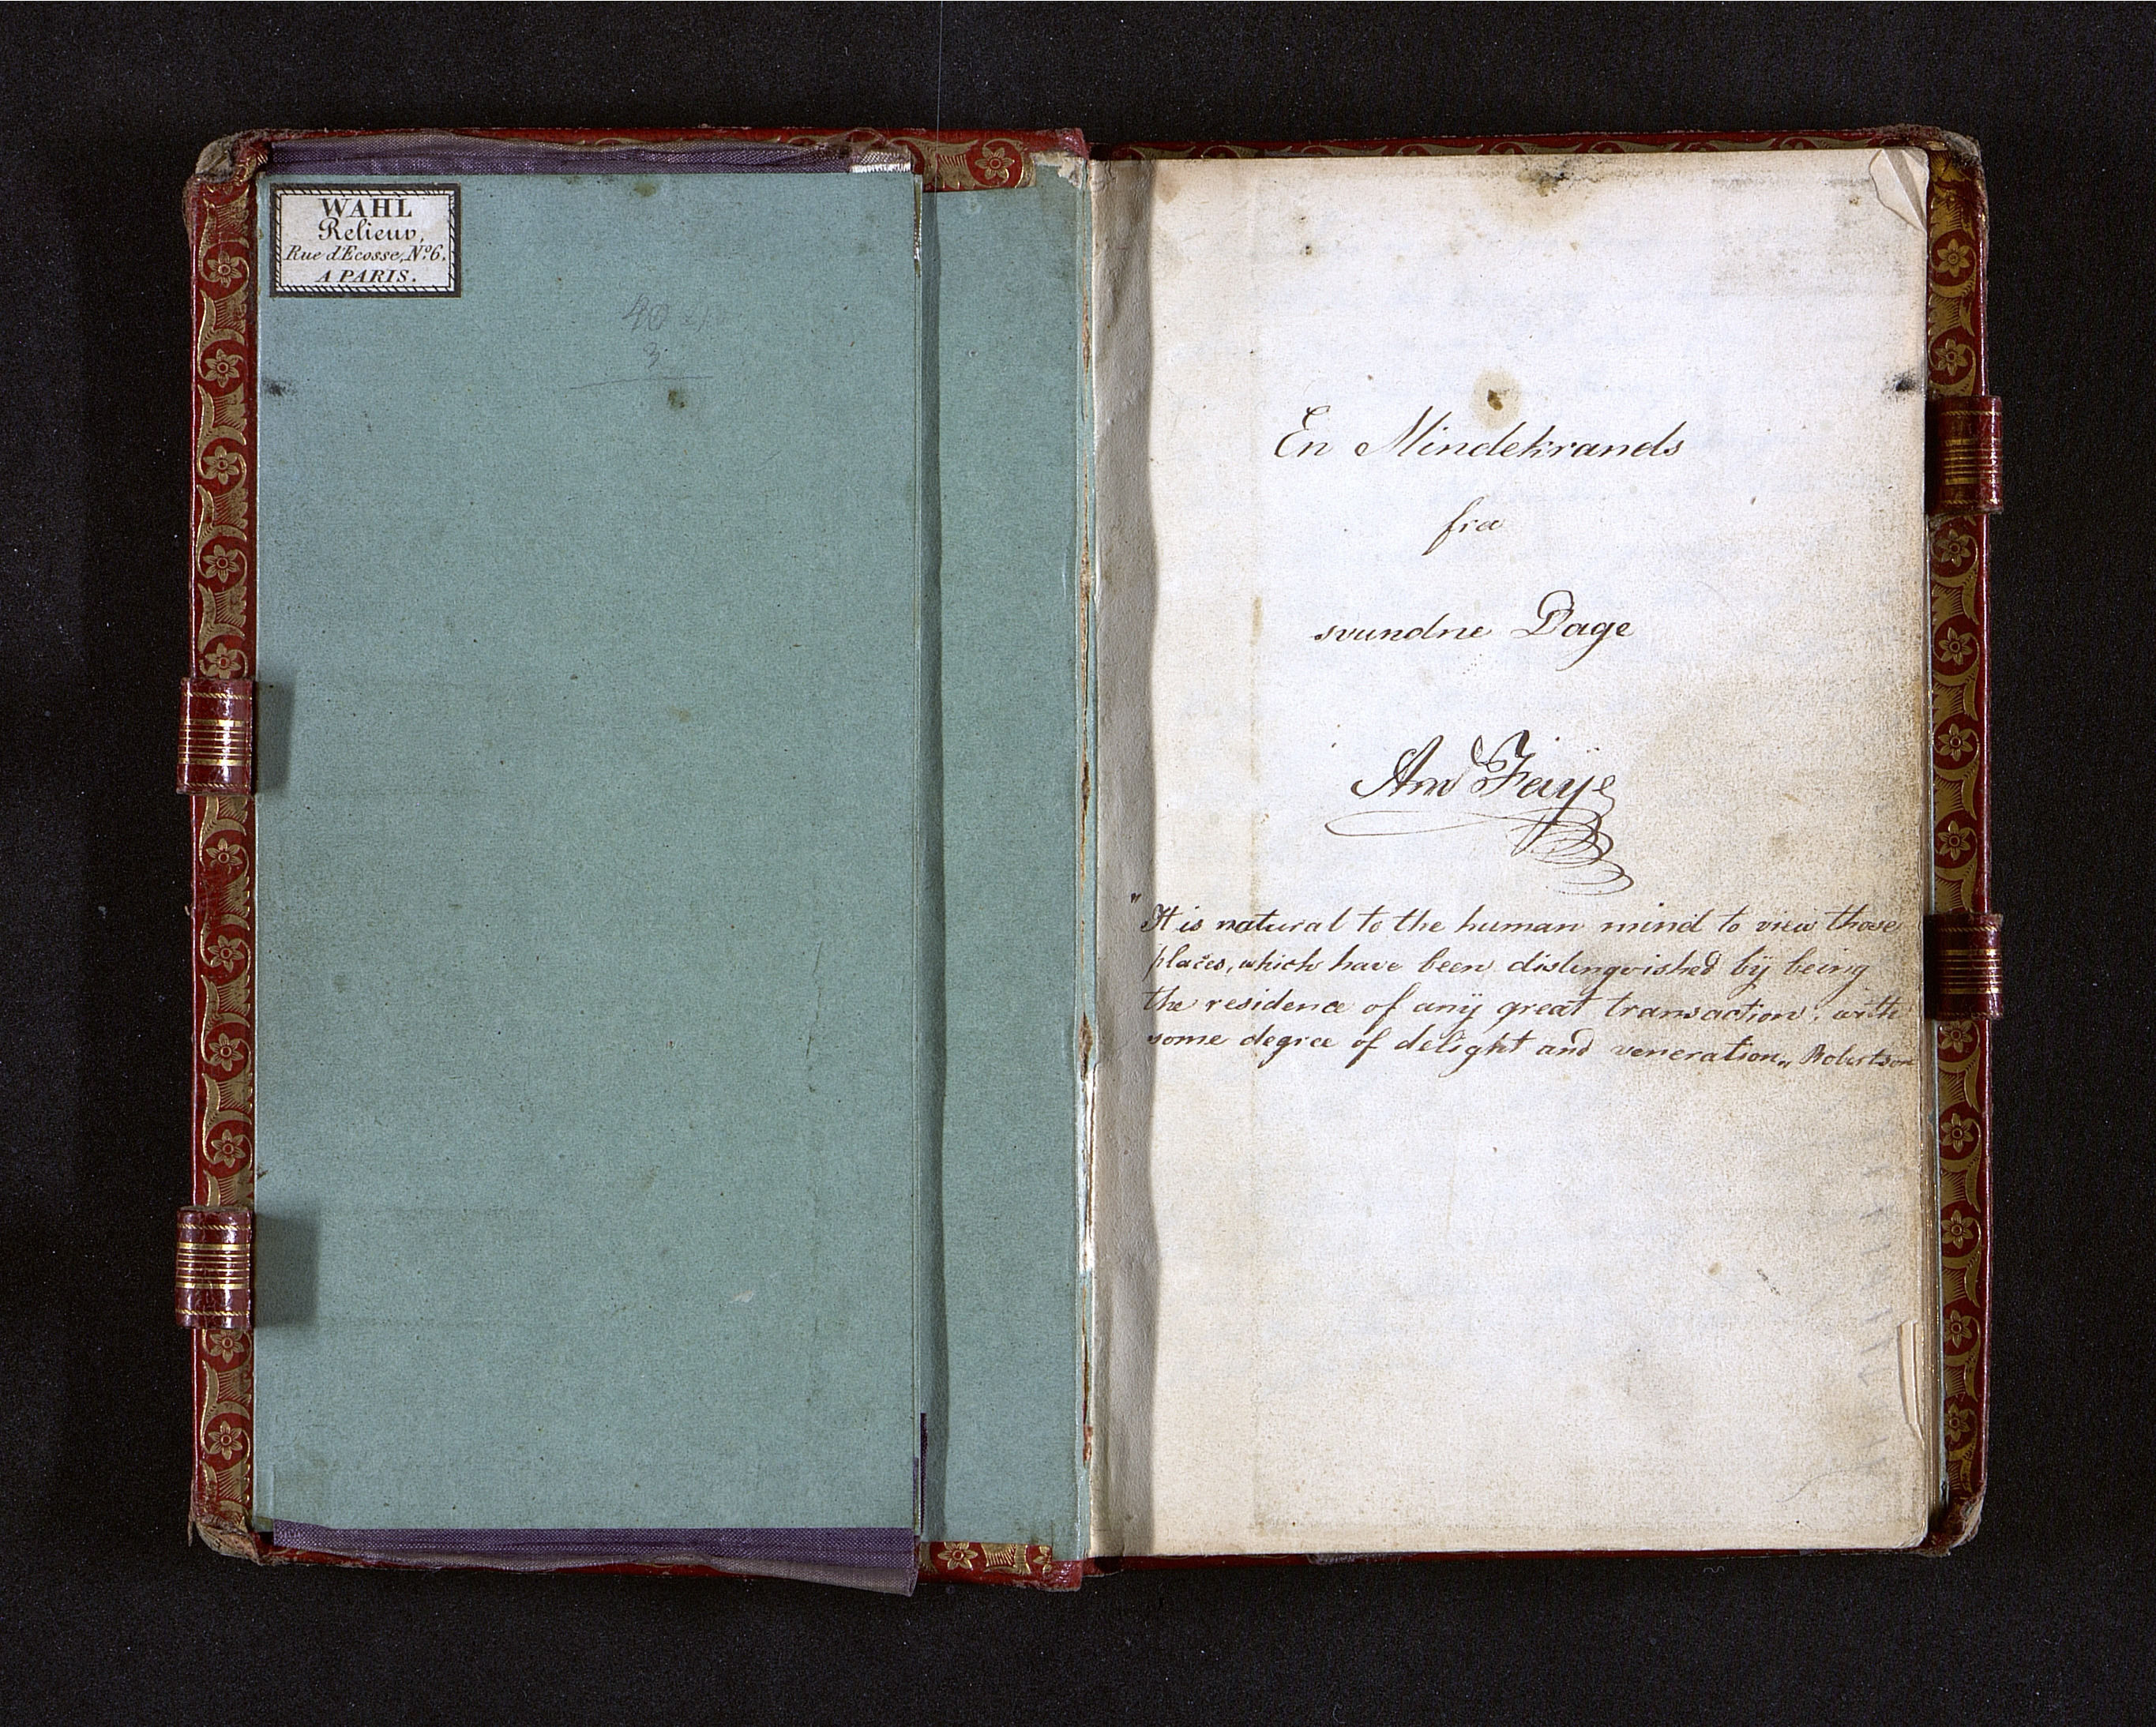 WAHL
Relieur,
Rue d'Ecosse, No. 6.
A PARIS.
3
En Mindekrands
fra
svundne Dage
And Faÿe
"It is natural to the human mind to view those
places, which have been distingvished bÿ being
the residence of anÿ great transaction, with
some degree of delight and veneration„ Robertson